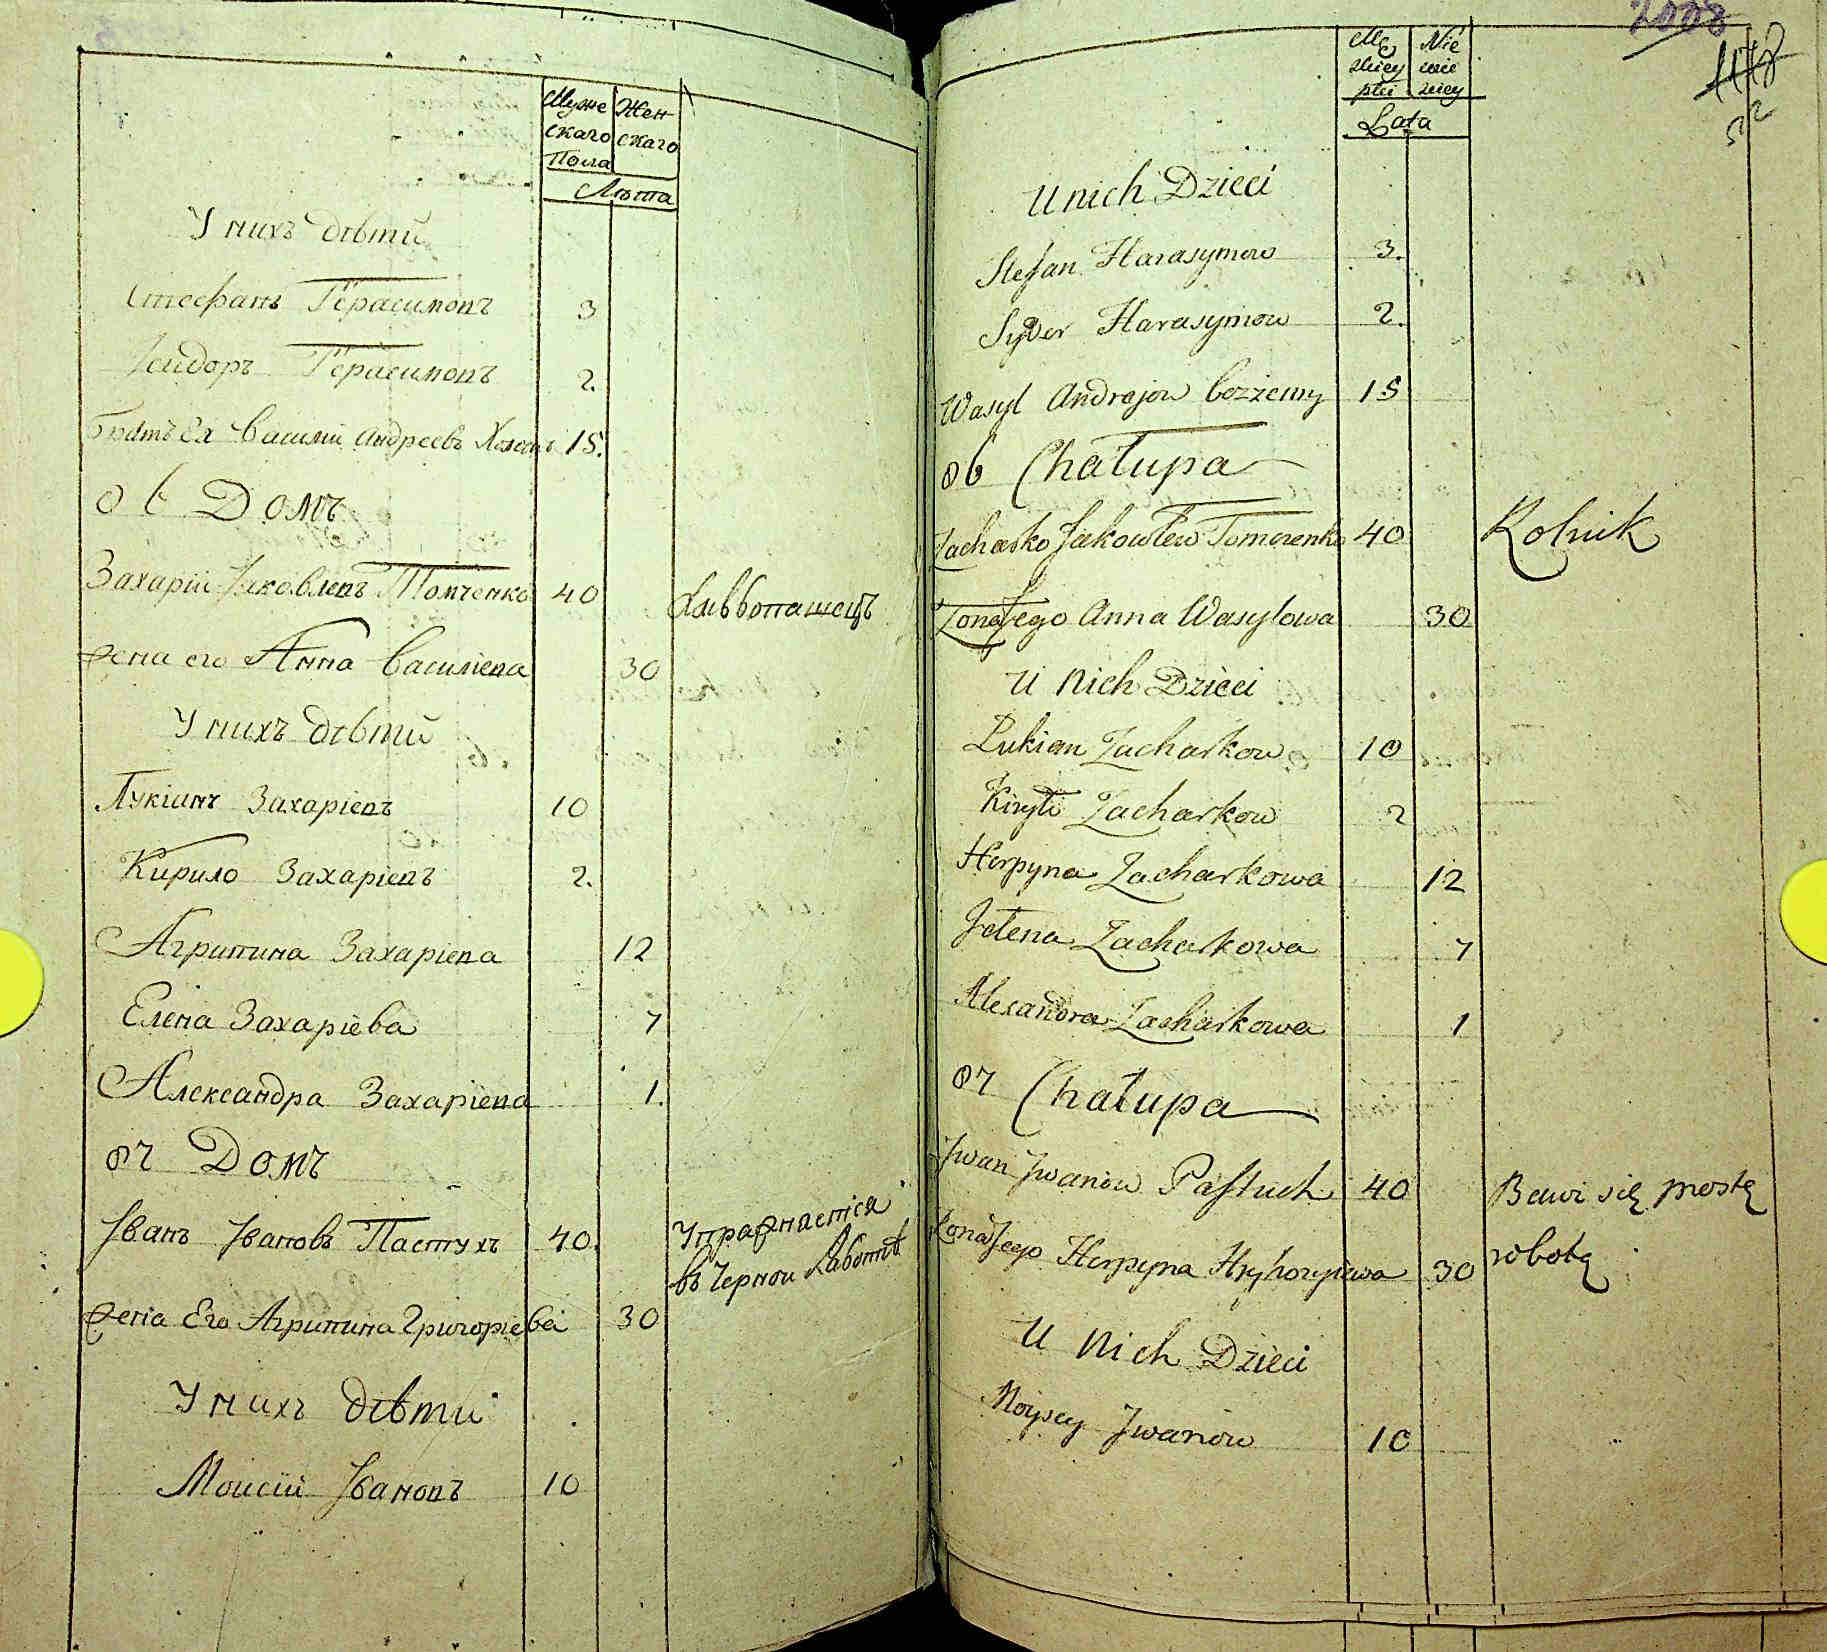 Муже
скаго
Пола
Жен-
скаго
Лѣта
У нихъ дѣтй
Стефанъ Герасимовъ 3
Ісидоръ Герасимовъ 2.
Братъ Ея Василий Андреевъ 15.
86 Домъ
Захарій Іаковлевъ Томченко 40 Хлѣбопашецъ
Жена его Анна Василіева 30
У нихъ дѣтй
Лукіанъ Захаріевъ 10
Кирило Захаріевъ 2.
Агрипина Захаріева 12
Елена Захаріева 7
Александра Захаріева 1.
87 Домъ
Іванъ Івановъ Пастухъ 40. Упражнаетіся
въ Черной Работѣ
Жена Его Агрипина Григоріева 30
У нихъ дѣти
Моисій Івановъ 10
2008
1178
52
Mę
zkiey
płci
Nie
wie
zkiey
Lata
U nich Dzieci
Stefan Harasymow 3.
Sydor Harasymow 2.
Wasyl Andrejow 15
86 Chałupa
Zacharko Jakowlew Tomczenko 40 Rolnik
Zona Jego Anna Wasylowa 30
U Nich Dzieci
Łukian Zacharkow 10
Kiryło Zacharkow 2
Horpyna Zacharkowa 12
Jelena Zacharkowa 7
Alexandra Zacharkowa 1
87 Chałupa
Jwan Jwanow Pastuch 40 Bawi się prostą
robotą
Zona Jego Horpyna Hryhoryiowa 30
U Nich Dzieci
Moysey Jwanow 10